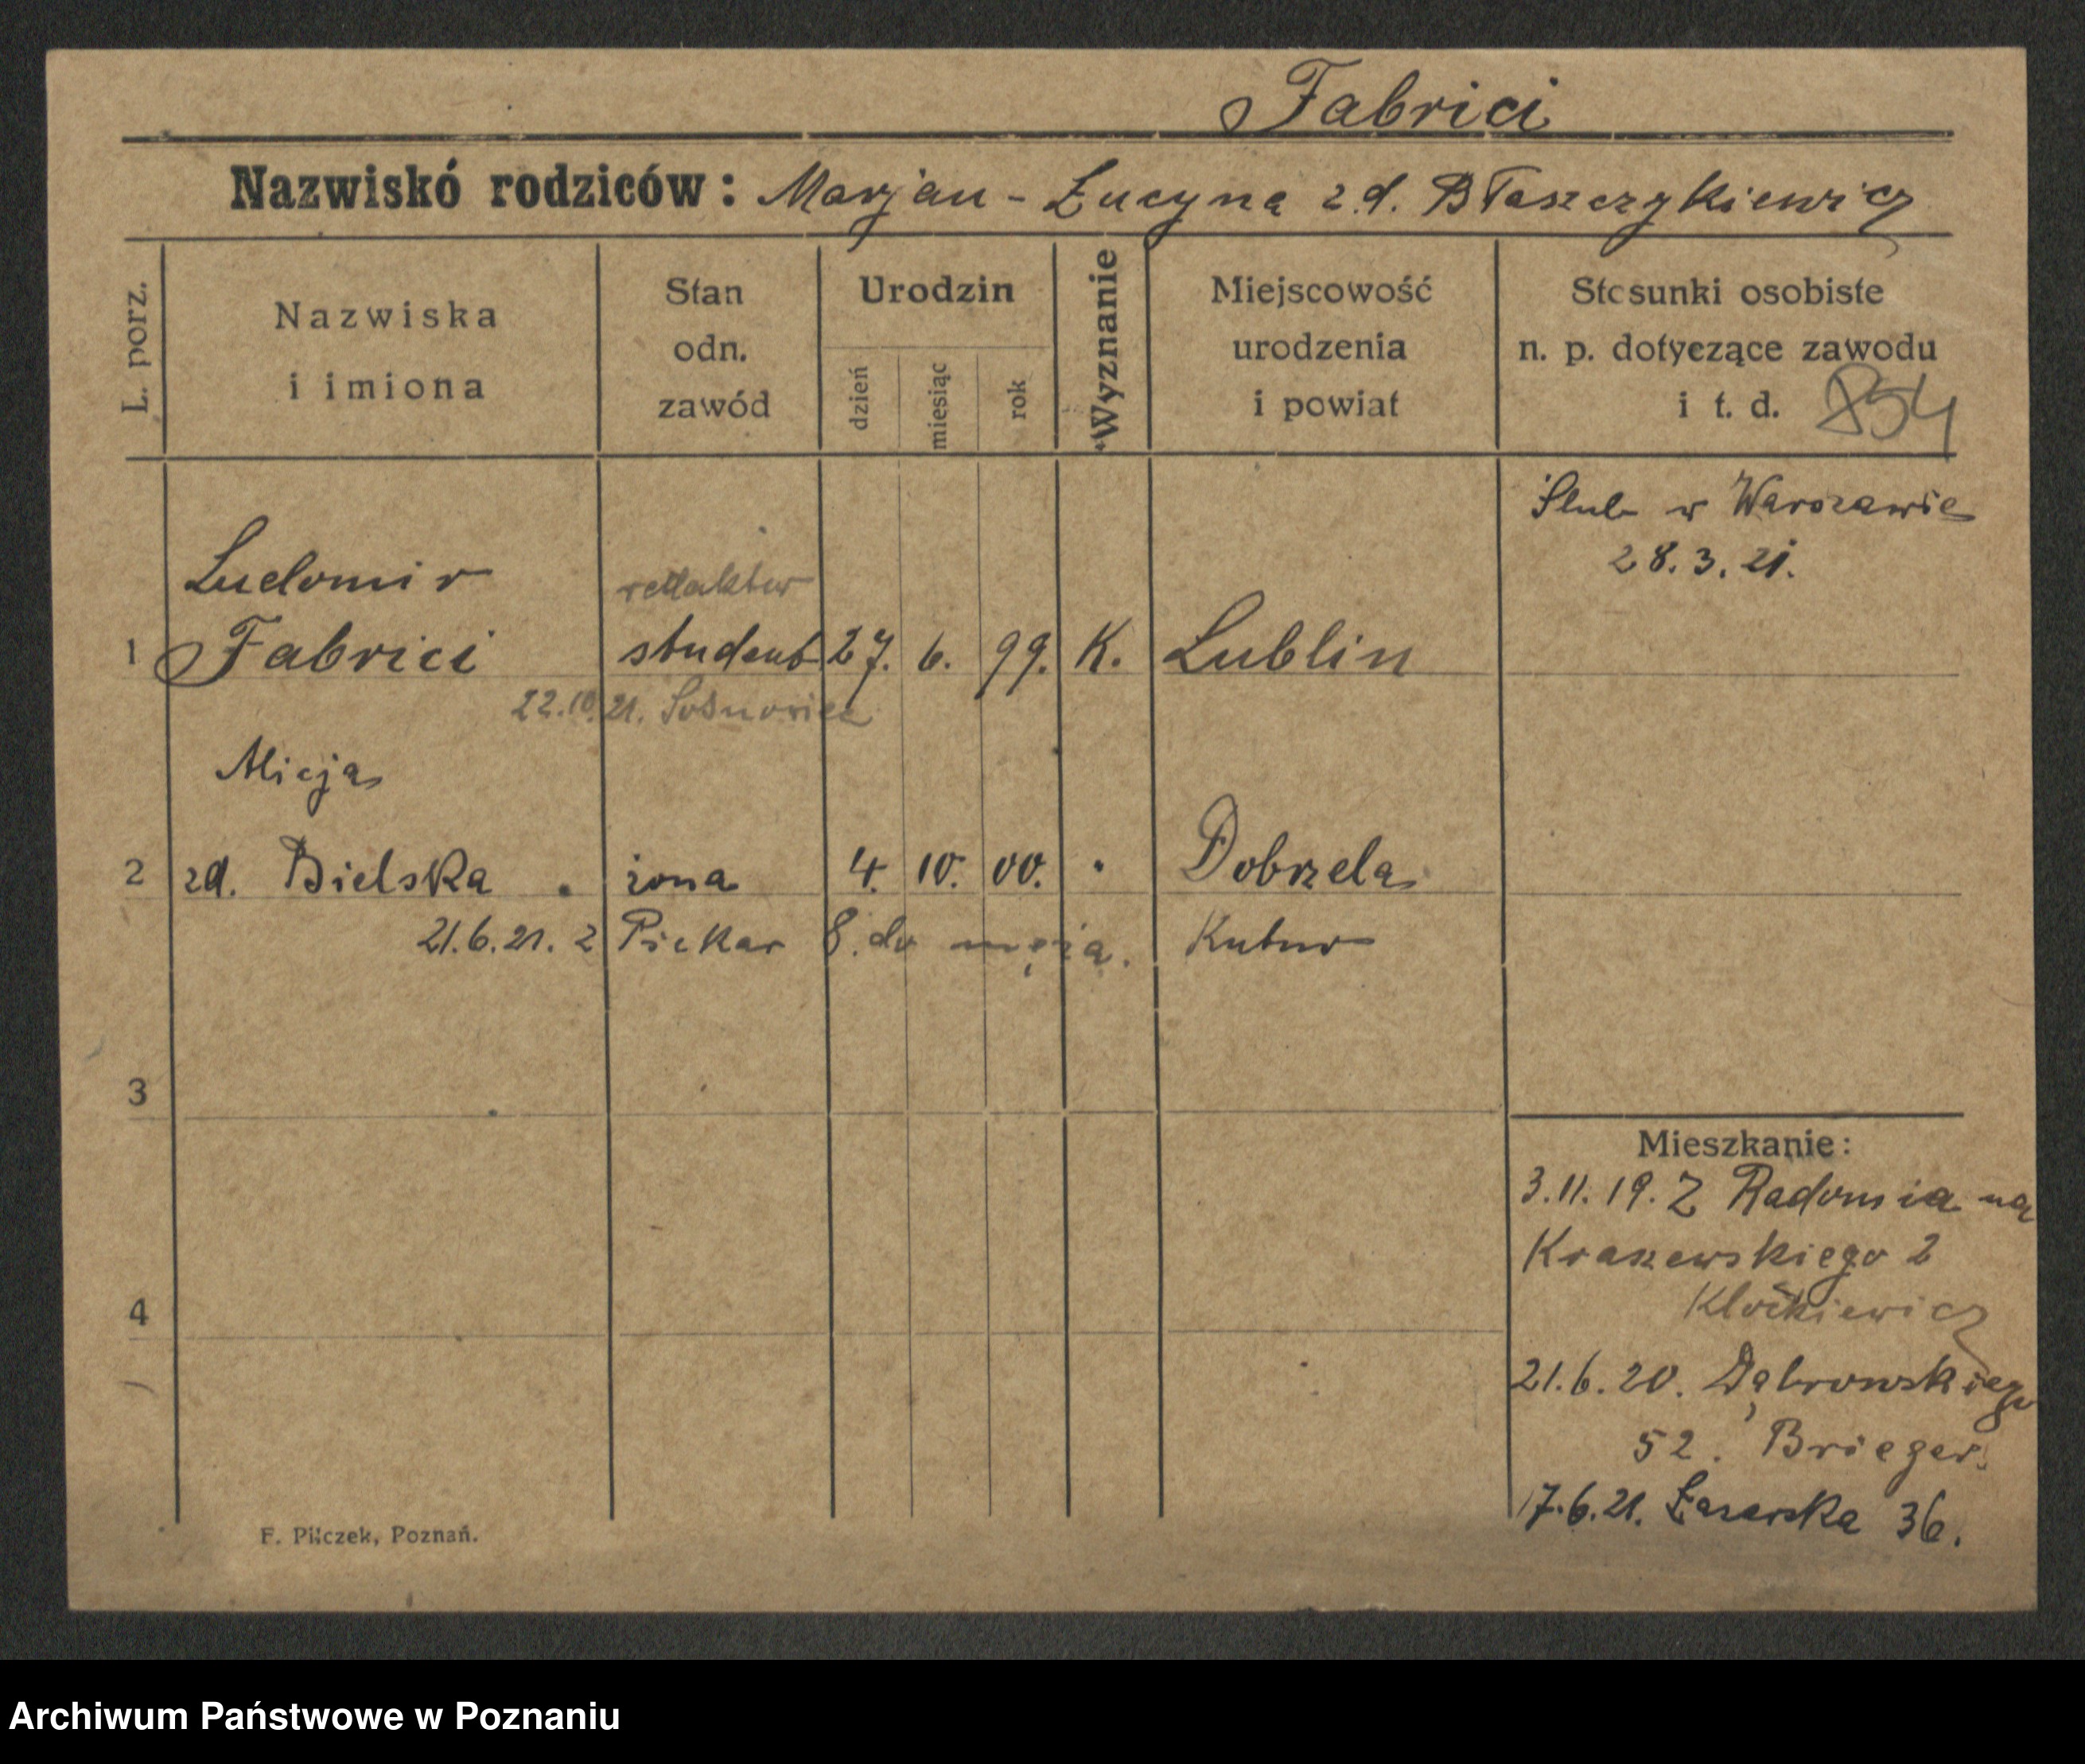 Fabrici
Nazwiskó rodziców: Marjan - Łucyna z.d. Błaszczykiewicz
L. porz.
Nazwiska
i imiona
Stan
odn.
zawód
Urodzin
dzień
miesiąc
rok
Wyznanie
Miejscowość
urodzenia
i powiat
Stosunki osobiste
n. p. dotyczące zawodu
i t. d. 854
Ślub w Warszawie
28.3.21.
Ludomir
redaktor
1 Fabrici student 27. 6. 99. K. Lublin
22.10.21. Sosnowiec
Alicja
2 zd. Bielska żona 4. 10. 00. " Dobrzela
21.6.21. z Piekar 8. do męża. Kutno
3
Mieszkanie:
3.11.19. Z Radomia na
Kraszewskiego 2
4
Klóskiewicz
21.6.20. Dąbrowskiego
52. Brieger.
17.6.21. Łazarska 36.
F. Pilczek, Poznań.
Archiwum Państwowe w Poznaniu